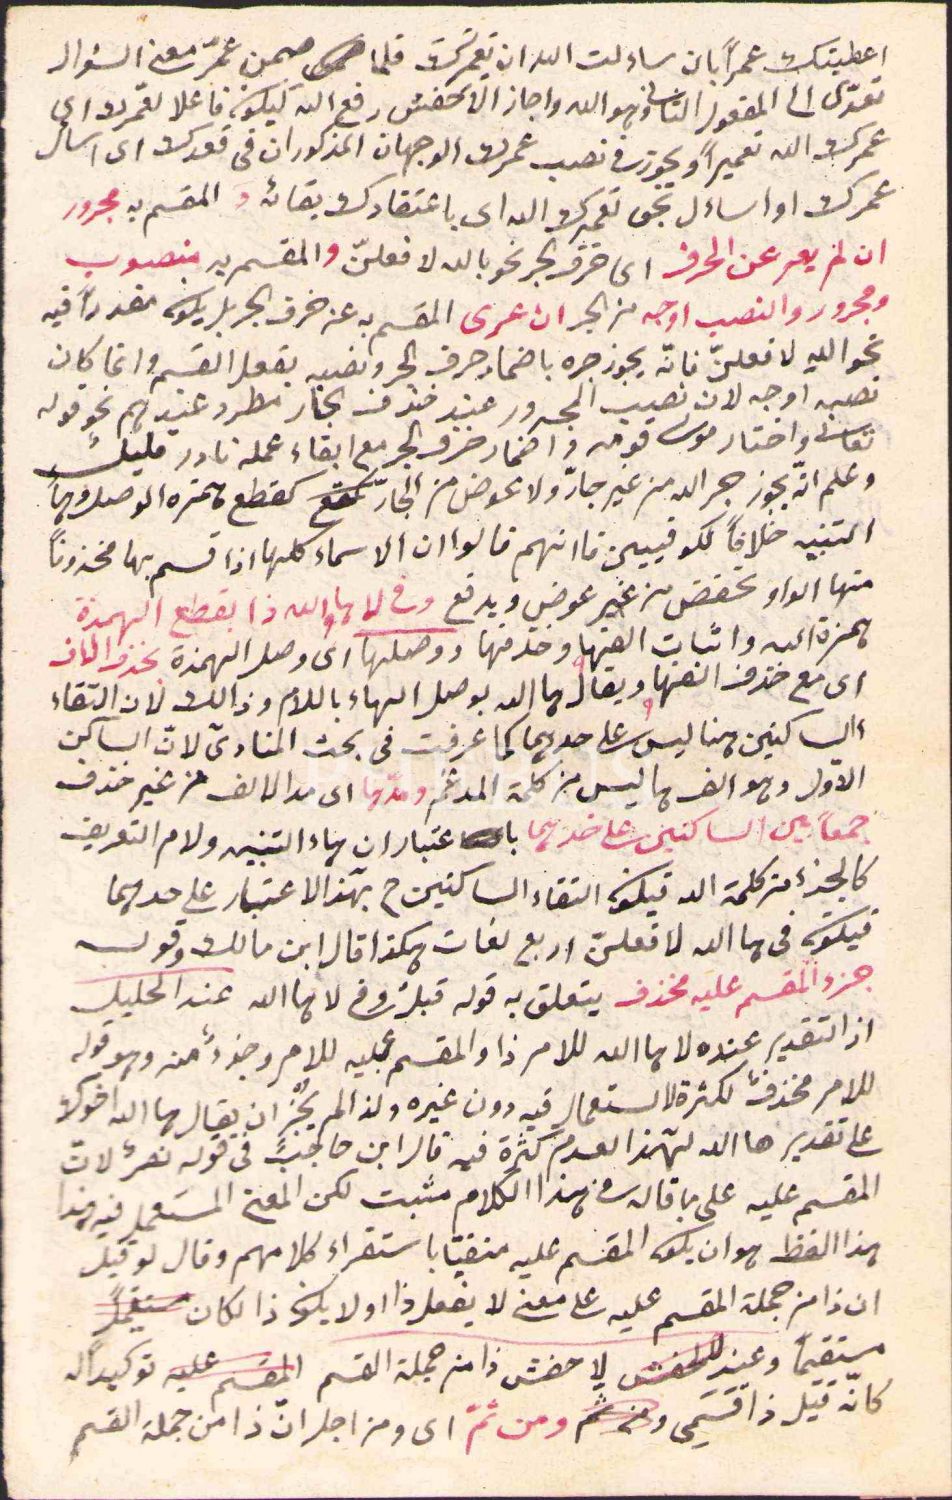 اعطيتك عمراً بان ساءلت الله ان يعمرك فلما ضمن عمّر معنى السؤال
تعدّى الى المفعول الثانى وهو الله واجاز الاخفش رفع الله ليكون فاعلا لعمرك اى
عمرك الله تعميراً ويجوز فى نصب عمرك الوجهان المذكوران فى قعدك اى اسأل
عمرك او اساءل بحق تعميرك الله اى باعتقادك بقائه و المقسم به مجرور
ان لم يعر عن الحرف اى حرف الجر نحو بالله لافعلنّ والمقسم به منصوب
ومجرور والنصب اوجه من الجر ان عرى المقسم به عن حرف الجر بل يكون مقدراً فيه
نحو الله لافعلنّ فانّه يجوز جره باضمار حرف الجر ونصبه بفعل القسم وانما كان
نصبه اوجه لان نصب المجرور عند حذف الجار مطرد عندهم نحو قوله
تعالى واختار موسى قومه واضمار حرف الجر مع ابقاء عمله نادر قليل
وعلم انّه يجوز جر الله من غير جارّ ولا عوض من الجارّ كقطع همزه الوصل وهاء
التنبيه خلافاً للكوفيين فانهم قالوا ان الاسماء كلها اذا قسم بها محذوفاً
منها الواو تخفض من غير عوض ويدفع وفى لاها والله ذا بقطع الهمزة
همزة الله واثبات الفها وحذفها ووصلها اى وصل الهمزة بحذف الالف
اى مع حذف الفها ويقال ها الله بوصل الهاء باللام وذالك لان التقاء
الساكنين هنا ليس على حدهما كما عرفت فى بحث المنادى لانّ الساكن
الاوّل وهو الف ها ليس من كلمة المدغم ومدّها اى مد الالف من غير حذف
جمعاً بين الساكنين على حدهما باعتبار ان هاء التنبيه ولام التعريف
كالجذء من كلمة الله فيكون التقاء الساكنين ح بهذا الاعتبار على حدهما
فيكون فى ها الله لافعلنّ اربع لغات هكذا قال ابن مالك وقوله
جزء المقسم عليه محذف يتعلق به قوله قبل وفى لاها الله عند الخليل
اذ التقدير عنده لاها الله للامر ذا والمقسم عليه للامر وجزء منه وهو قوله
للامر محذف لكثرة الاستعمال فيه دون غيره ولذا لم يجز ان يقال ها الله اخوك
على تقدير ها الله لهذا لعدم كثرة فيه قال ابن حاجب فى قوله نعر لانّ
المقسم عليه على ما قاله فى هذا الكلام مثبت لكن المعنى المستعمل فيه هذا
هذا الفظ هو ان يكون المقسم عليه منفيّا باستقراء كلامهم وقال لو قيل
ان ذا من جملة المقسم عليه على معنى لا يفعل ذا او لا يكون ذا لكان
مستقيماً وعند لاخفش ذا من جملة القسم المقسم عليه توكيداً له
كانّه قيل ذا قسمى ومن ثمّ اى ومن اجل انّ ذا من جملة القسم